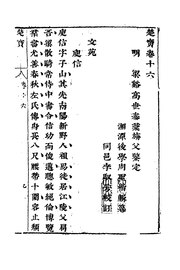 楚寶卷十六
明 梁谿高世泰彙旃父鑒定
湘潭後學周聖楷輯纂
同邑李
文苑
庾信
庾信字子山其先南陽新野人祖易徙居江陵父肩
吾散騎常侍中書令信幼而俊邁聰敏絕倫博覽
羣書尤善春秋左氏傳身長八尺腰帶十圍容止頹
楚寶
卷十六